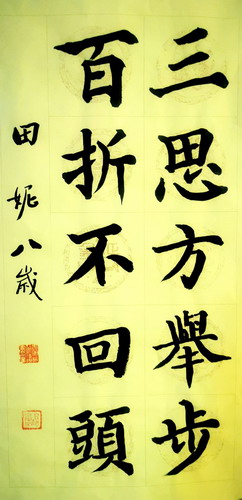 三思方舉步
百折不回頭
田妮八歲